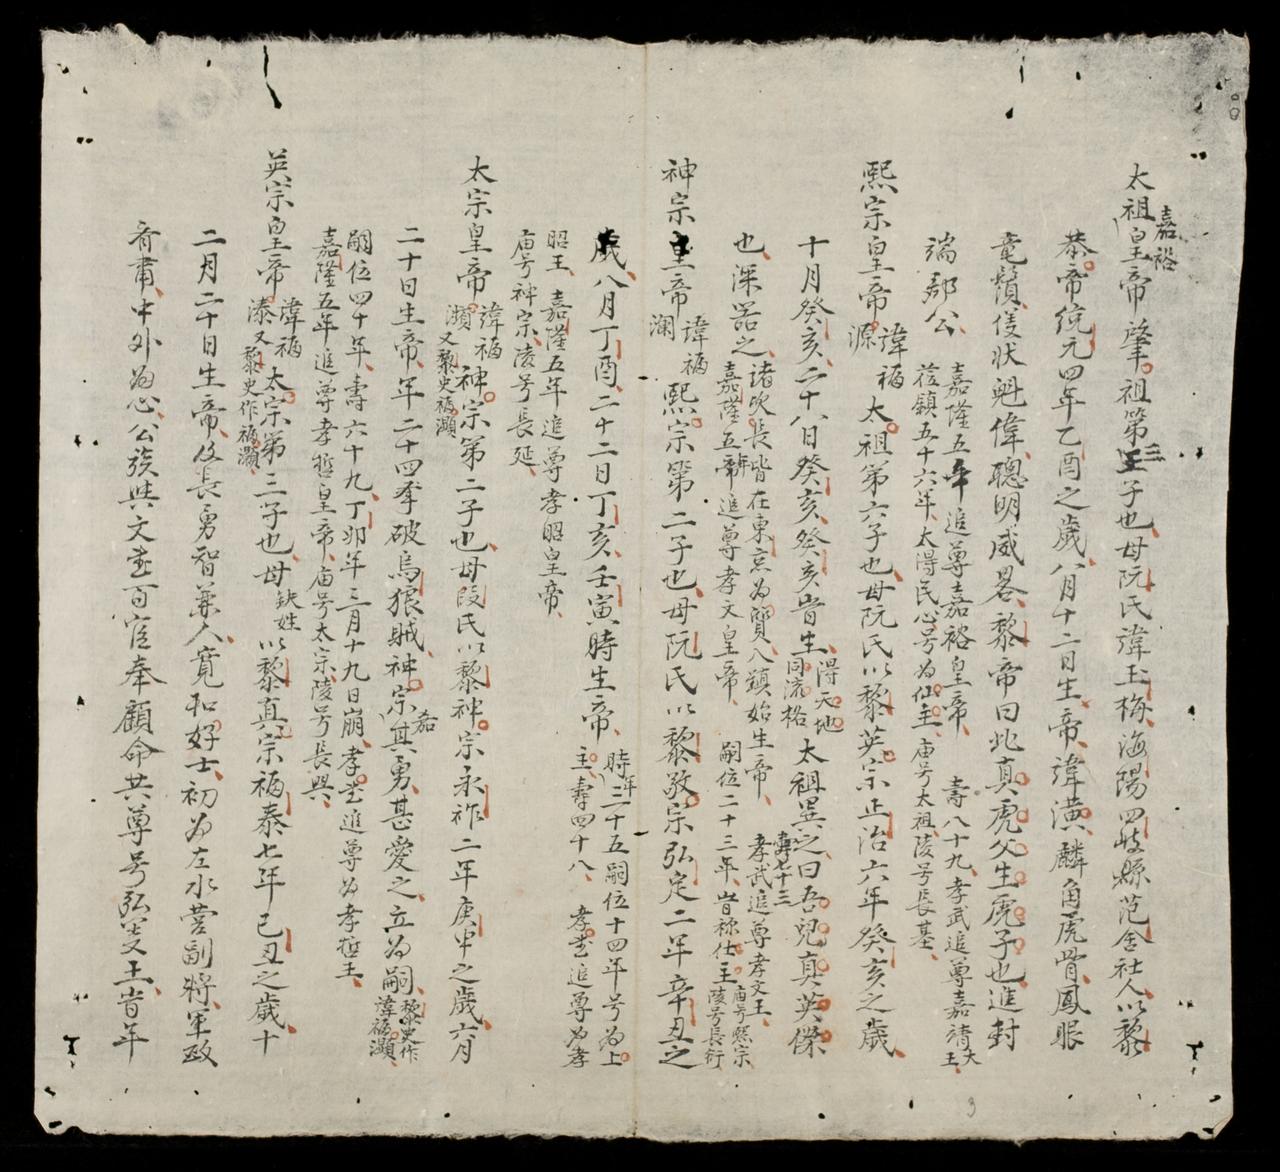 太祖嘉裕皇帝肇祖第三子也母阮氏諱玉梅海陽四岐縣范舍社人以黎
恭帝統元四年乙酉之歲八月十二日生帝諱潢麟角虎骨鳳眼
竜鬚儀状魁偉聰明威畧黎帝曰此真虎父生虎子也進封
端郡公
嘉隆五年追尊嘉裕皇帝 壽八十九孝武追尊嘉靖大王
蒞鎮五十六年太得民心号為仙主庙号太祖陵号長基
熙宗皇帝諱福源太祖第六子也母阮氏以黎英宗正治六年癸亥之歲
十月癸亥二十八日癸亥癸亥昔生得天地同流格太祖異之曰吾兒真英傑
也深器之
諸次長皆在東京為質入鎮始生帝 壽七十三孝武追尊孝文王庙号熙宗
嘉隆五年追尊孝文皇帝 嗣位二十三年昔称仕主陵号長衍
神宗皇帝諱福瀾熙宗第二子也母阮氏以黎敬宗弘定二年辛丑之
歲八月丁酉二十二日丁亥壬寅時生帝
時年三十五嗣位十四年号為上
主壽四十八 孝武追尊為孝
昭王 嘉隆五年追尊孝昭皇帝
庙号神宗陵号長延
太宗皇帝諱福瀕又黎史福灝神宗第二子也母段氏以黎神宗永祚二年庚申之歲六月
二十日生帝年二十四率破烏狠賊神宗嘉其勇甚愛之立為嗣黎史作諱福灝
嗣位四十年壽六十九丁卯年三月十九日崩孝武追尊為孝哲王
嘉隆五年追尊孝哲皇帝庙号太宗陵号長興
英宗皇帝諱福溙又黎史作福灝太宗第二子也母缺姓以黎真宗福泰七年己丑之歲十
二月二十日生帝及長勇智兼人寬和好士初為左水營副將軍政
齊肅中外為心公族與文武百官奉顧命共尊号弘義王昔年